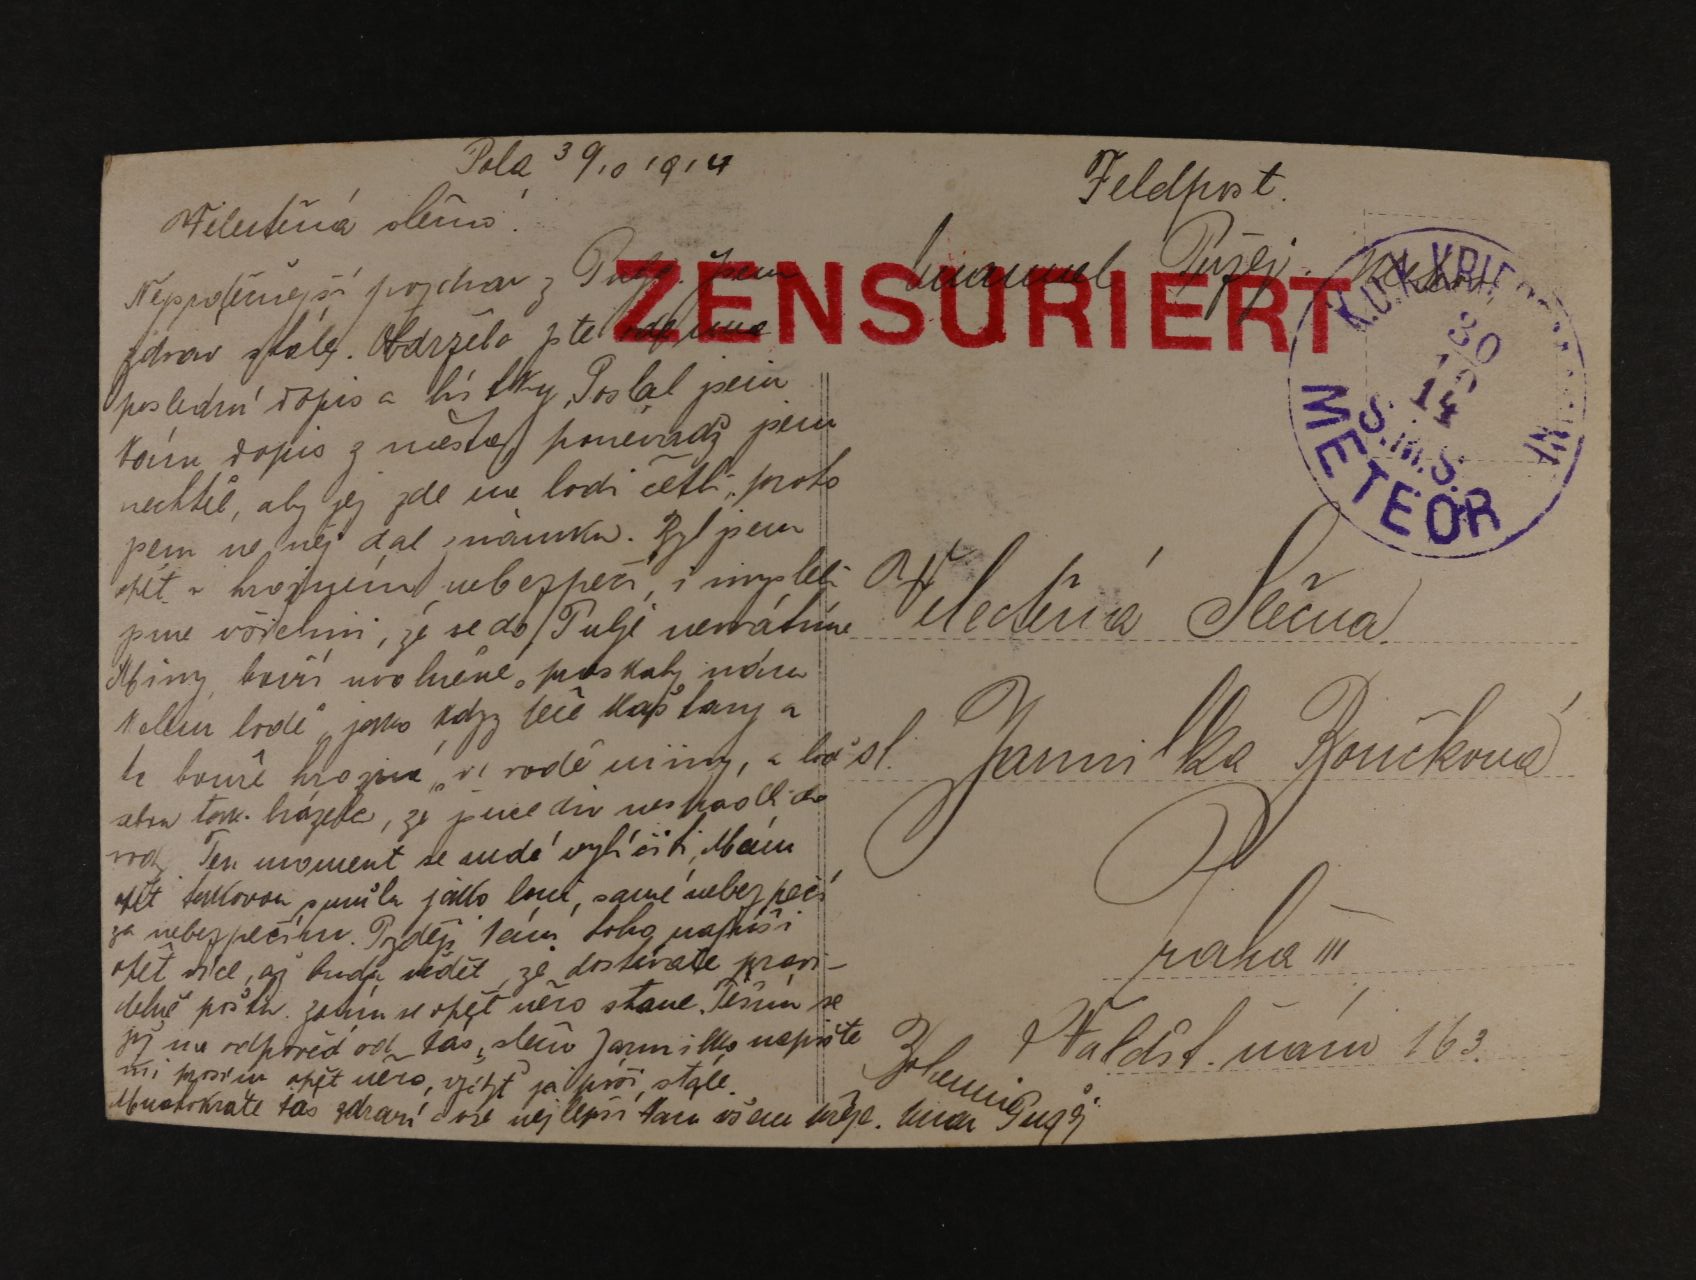 Pola 30/10 1914
Feldpost.
Velectěná slečno!
Nejsrdečnější pozdrav z Pulje. Jsem
zdráv stále. Obdržela jste ode mne
poslední dopis a lístky. Poslal jsem
Vám dopis z města, poněvadž jsem
nechtěl, aby jej zde na lodi četli, proto
jsem na něj dal známku. Byl jsem
opět v hrozném nebezpečí, i mysleli
jsme všichni, že se do Pulje nevrátíme
Miny bouří uvolněné, praskaly nám
kolem lodě, jako když peče kaštany a
ta bouře hrozná, ve vodě miny, a loď
sebou tak házela, že jsme div nespadli do
vody. Ten moment se nedá vylíčiti. Mám
opět takovou smůlu jako loni, samé nebezpečí
za nebezpečím. Později Vám toho napíši
opět více, až budu vědět, že dostáváte pravi-
delně poštu. Zatím se opět něco stane. Těším se
již na odpověď od Vás, slečno Jarmilko napište
mi prosím opět něco, vždyť já píši stále.
Mnohokráte Vás zdraví a vše nejlepší Vám všem přeje. Eman Pužej
Emanuel Pužej
ZENSURIERT
K.U.K. KRIEGSMARINE
30
10
14
S.M.S.
METEOR
Velectěná Slečna
sl. Jarmilka Boučková
Praha III
Valdšt. nám 163.
Bohemia